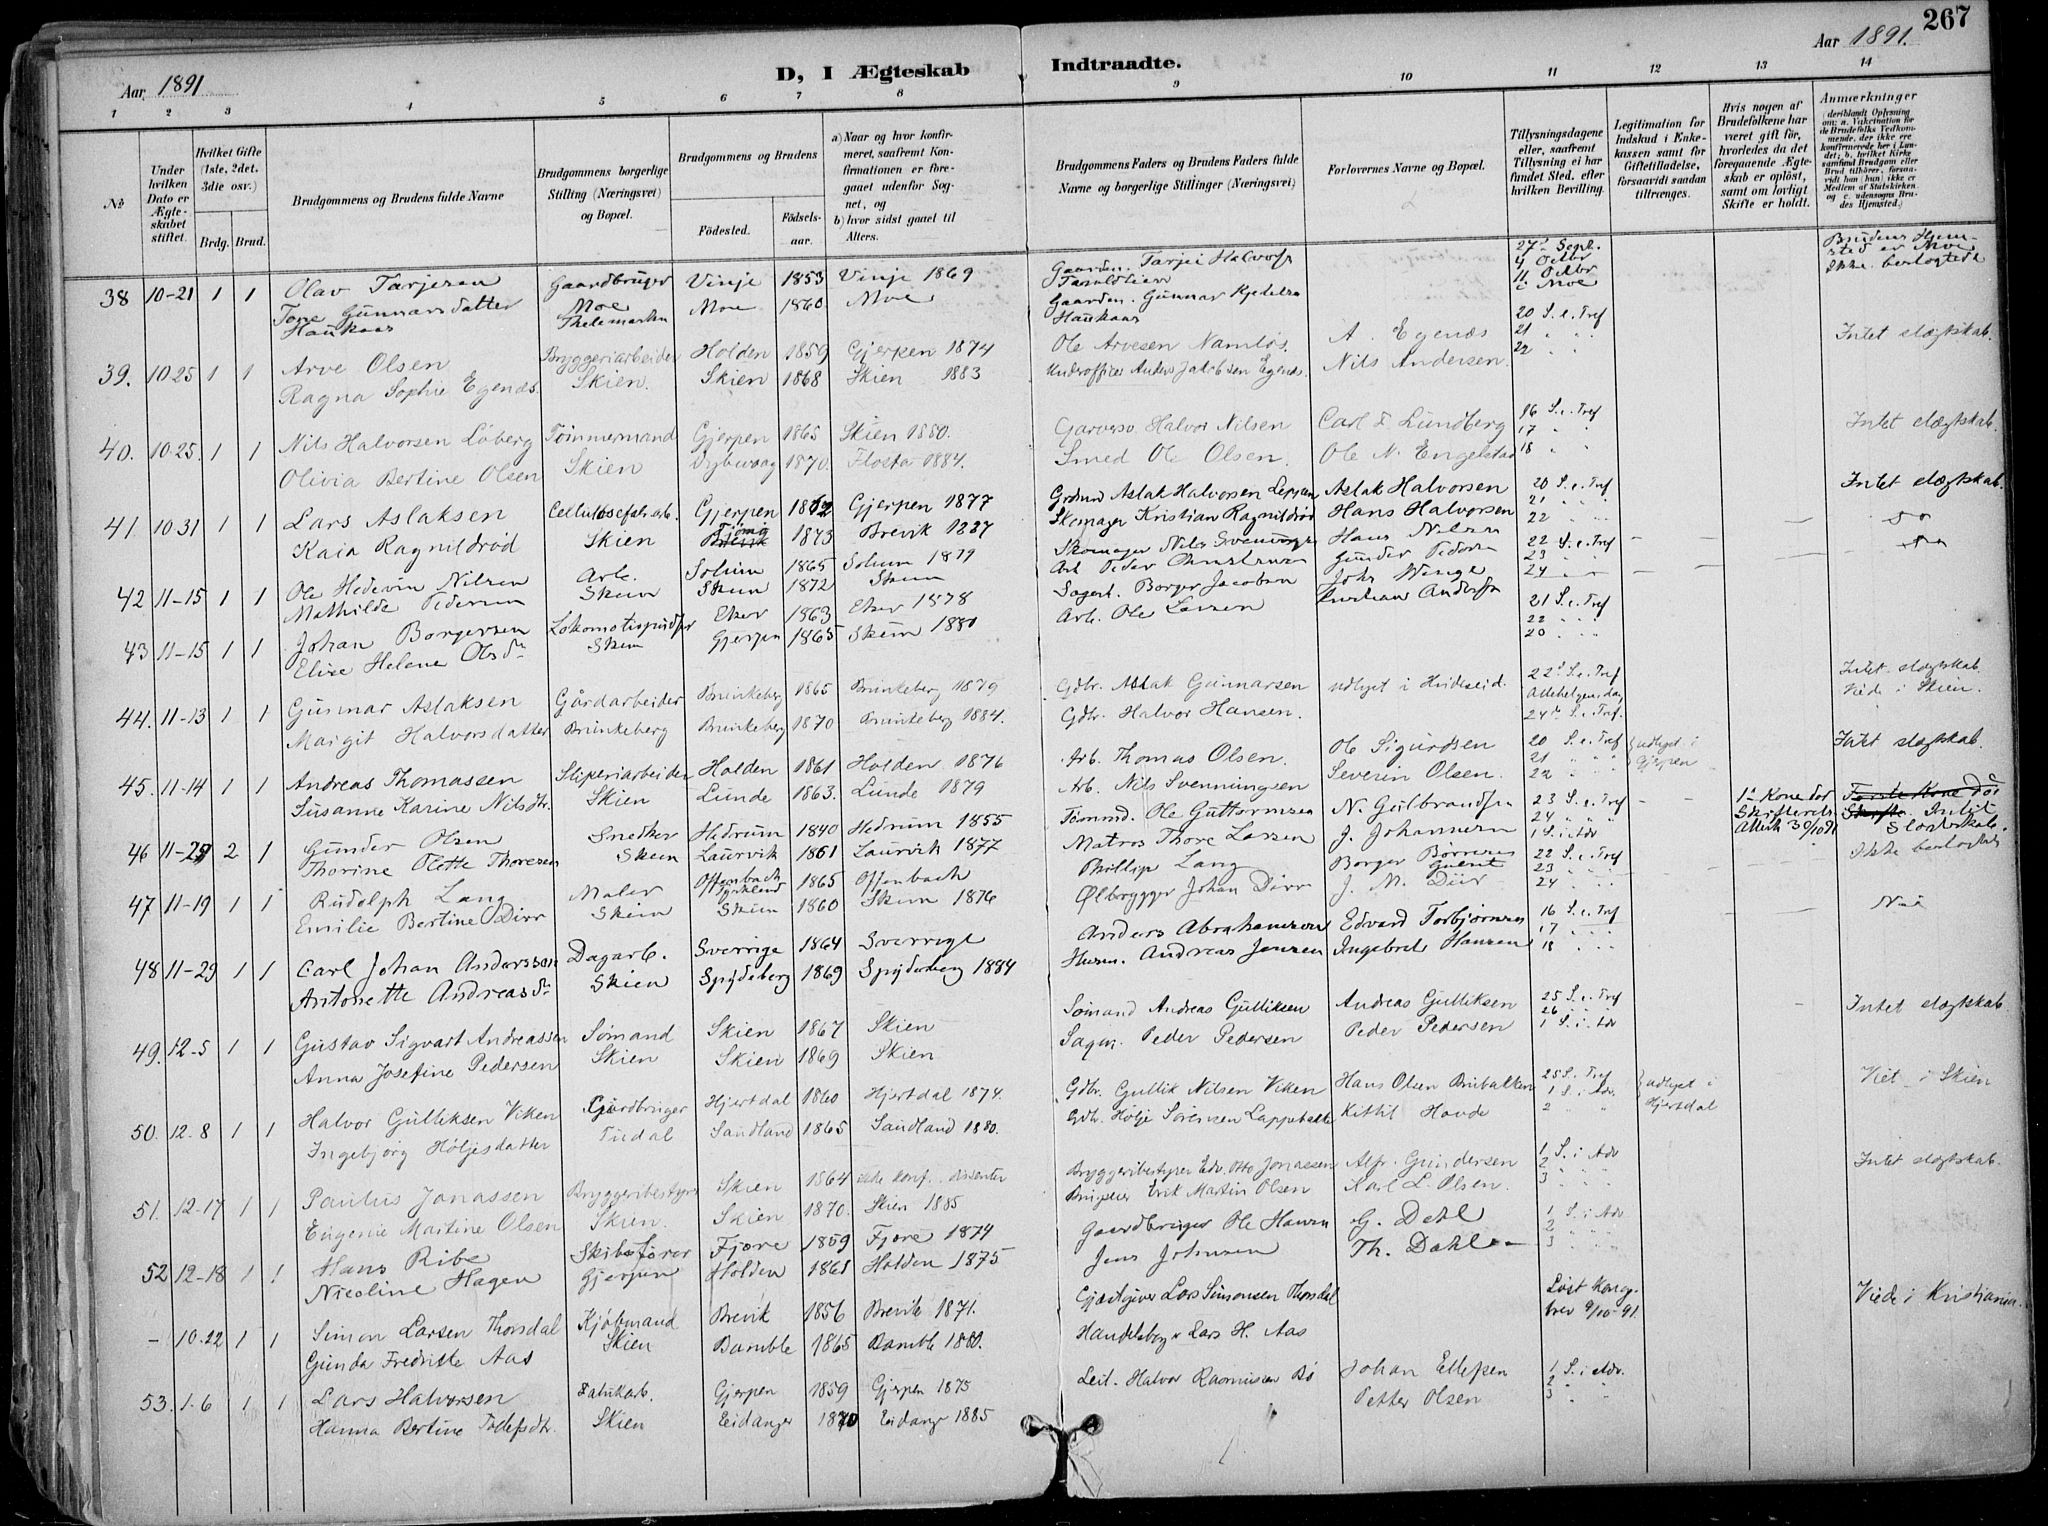 267
Aar 1891
D, I Ægteskab Indtraadte.
Aar 1891.
1 2 3 4 5 6 7 8 9 10 11 12 13 14
No
Under hvilken Dato er Ægteskabet stiftet.
Hvilket Gifte (1ste, 2det, 3die osv.)
Brdg. Brud.
Brudgommens og Brudens fulde Navne
Brudgommens borgerlige Stilling (Næringsvei) og Bopæl.
Brudgommens og Brudens
Födested. Födselsaar.
a) Naar og hvor konfirmeret, saafremt Konfirmationen er foregaaet udenfor Sognet, og
b) hvor sidst gaaet til Alters.
Brudgommens Faders og Brudens Faders fulde Navne og borgerlige Stillinger (Næringsvei)
Forlovernes Navne og Bopæl.
Tillysningsdagene eller, saafremt Tillysning ei har fundet Sted, efter hvilken Bevilling.
Legitimation for Indskud i Enkekassen samt for Giftetilladelse, forsaavidt saadan tiltrænges.
Hvis nogen af Brudefolkene har været gift för, hvorledes da det foregaaende Ægteskab er oplöst, samt om lovligt Skifte er holdt.
Anmærkninger
38 10-21 1 1 Olav Tarjesen Gaardbruger Vinje 1853 Vinje 1869 Gaardm. Tarjei Halvorsn 27d Sept. Brudens Hjemsted er Moe
Tone Gunnarsdatter Haukaas Moe Thelemarken Moe 1860 Moe Gaardm. Gunnar Kjedelsn Haukaas 4 Octbr 11. Octbr i Moe Ikke beslægtede
39. 10-25 1 1 Arve Olsen Bryggeriarbeider Holden 1859 Gjerpen 1874 Ole Arvesen Namløs. A. Egenæs 20 S. e. Tref 21 Intet slægtskab.
Ragna Sophie Egenæs. Skien. Skien 1868 Skien 1883 Underofficer Anders Jakobsen Egenæs. Nils Andersen. 22
40. 10-25. 1 1 Nils Halvorsen Løberg Tømmermand Gjerpen 1865 Skien 1880. Garversv. Halvor Nilsen Carl F. Lundberg 16 S. e. Tref 17 Intet slægtskab.
Olivia Bertine Olsen Skien Dybvaag 1870. Flosta 1884. Smed Ole Olsen. Ole N. Engelstad 18
41 10-31 1 1 Lars Aslaksen Cellulosefabr.arb. Gjerpen 1862 Gjerpen 1877 Aslak Halvorsen Leppen Aslak Halvorsen 20 S. e. Tref 21 Intet slægtskab.
Kaia Ragnildrød Skien Brevik 1873 Brevik 1887 Skomager Kristian Ragnildrød Hans Halvorsen 22
42 11-15 1 1 Ole Hedevin Nilsen Arb. Solum 1865 Solum 1879 Skomager Nils Svenningsen Hans Nilsen 22 S. e. Tref 23
Mathilde Pedersen Skien Skien 1872 Skien Arb. Peder Christensen Gunder Pedersen 24
43 11-15 1 1 Johan Borgersen Lokomotivpudser Eker 1863 Eker 1878 Sagarb. Borger Jacobsen Johs Wenge 21 S. e. Tref
Elise Helene Olsdtr Skien Gjerpen 1865 Skien 1880 Arb. Ole Larsen 22 20
44. 11-13 1 1 Gunnar Aslaksen Gårdarbeider Brunkeberg 1865 Brunkeberg 1879 Gdbr. Aslak Gunnarsen udlyst i Hvideseid. 22d S. e. Tref Allehelgensdag Intet slægtskab
Margit Halvorsdatter Brunkeberg Brunkeberg 1870 Brunkeberg 1884. Gdbr. Halvor Hansen. 24de S. e. Tref. Viede i Skien.
45. 11-14 1 1 Andreas Thomassen Sliperiarbeider Holden 1861 Holden 1876 Arb. Thomas Olsen. Ole Sigurdsen 20 S. e. Tref 21 udlyst i Gjerpen Intet slægtskab.
Susanne Karine Nilsdtr. Skien Lunde 1863. Lunde 1879 Arb. Nils Svenningsen Severin Olsen. 22
46 11-29 2 1 Gunder Olsen Snedker Hedrum 1840 Hedrum 1855 Tømmd. Ole Guttormsen N. Gulbrandsn 23 S. e. Tref 24 1ste Kone død Skifteretts Attest 30/10 91 Første Kone død Skifte. Intet Slægtskab.
Thorine Olette Thoresen Skien Laurvik 1861 Laurvik 1877 Matros Thore Larsen J. Johannesn 1 S. i Adv Ikke beslægtede
47 11-19 1 1 Rudolph Lang Maler Offenbach Tyskland 1865 Offenbach Phillip Lang Borger 22 S. e. Tref 23
Emilie Bertine Dirr Skien Skien 1860 Skien 1876 Ølbrygger Johan Dirr J. M. Dirr 24 Nei
48 11-29 1 1 Carl Johan Andersson Dagarb. Sverrige 1864 Sverrige Anders Abrahamsson Edvard Torbjørnsen 16 S. e. Tref 17
Antonette Andreasdtr Skien Spydeberg 1869 Spydeberg 1884 Husm. Andreas Jensen Ingebret Hansen 18
49. 12-5 1 1 Gustav Sigvart Andreassen Sømand Skien 1867 Skien Sømand Andreas Gulliksen Andreas Gulliksen 25 S. e. Tref 26 Intet slægtskab
Anna Josefine Pedersen Skien Skien 1869 Skien Sagm. Peder Pedersen Peder Pedersen 1 S. i Adv
50. 12-8 1 1 Halvor Gulliksen Viken Gårdbruger Hjertdal 1860 Hjertdal 1874. Gdbr. Gullik Nilsen Viken Hans Olsen Brubakken 25 S. Tref 1 S. i Adv. udlyst i Hjertdal Viet i Skien
Ingebjørg Høljesdatter Tudal Sandland 1865 Sandland 1880. Gdbr. Hølje Sørensen Lappebakke Kittil Hovde 2
51. 12-17 1 1 Paulus Jonassen Bryggeribestyrer Skien 1864 ikke konf. dissenter Bryggeribestyrer Edv. Otto Jonassen Alfr. Gundersen 1 S. i Adv 2 Intet slægtskab.
Eugenie Martine Olsen Skien. Skien 1870. Skien 1885 Erik Martin Olsen Karl L. Olsen. 3
52 12-18 1 1 Hans Ribe Skibsfører Fjære 1859 Fjære 1874 Gaardbruger Ole Hansen G. Dahl 1 S. i Adv 2
Nicoline Hagen Gjerpen Holden 1861 Holden 1875 Jens Johnsen Th. Dahl 3
- 10-22 1 1 Simon Larsen Thorsdal Kjøbmand Brevik 1856 Brevik 1871. Gjæstgiver Lars Simonsen Thorsdal Løst kongebrev 9/10-91. Viede i Kristiania.
Gunda Fredrikke Aas Skien Bamble 1865 Bamble 1880. Handelsborger Lars H. Aas
53. 1-6 1 1 Lars Halvorsen Fabrikarb. Gjerpen 1859 Gjerpen 1875 Leil. Halvor Rasmussen Bø Johan Ellefsen 1 S. i Adv. 2
Hanna Bertine Tollefsdtr. Skien Eidanger 1870 Eidanger 1885 Petter Olsen 3